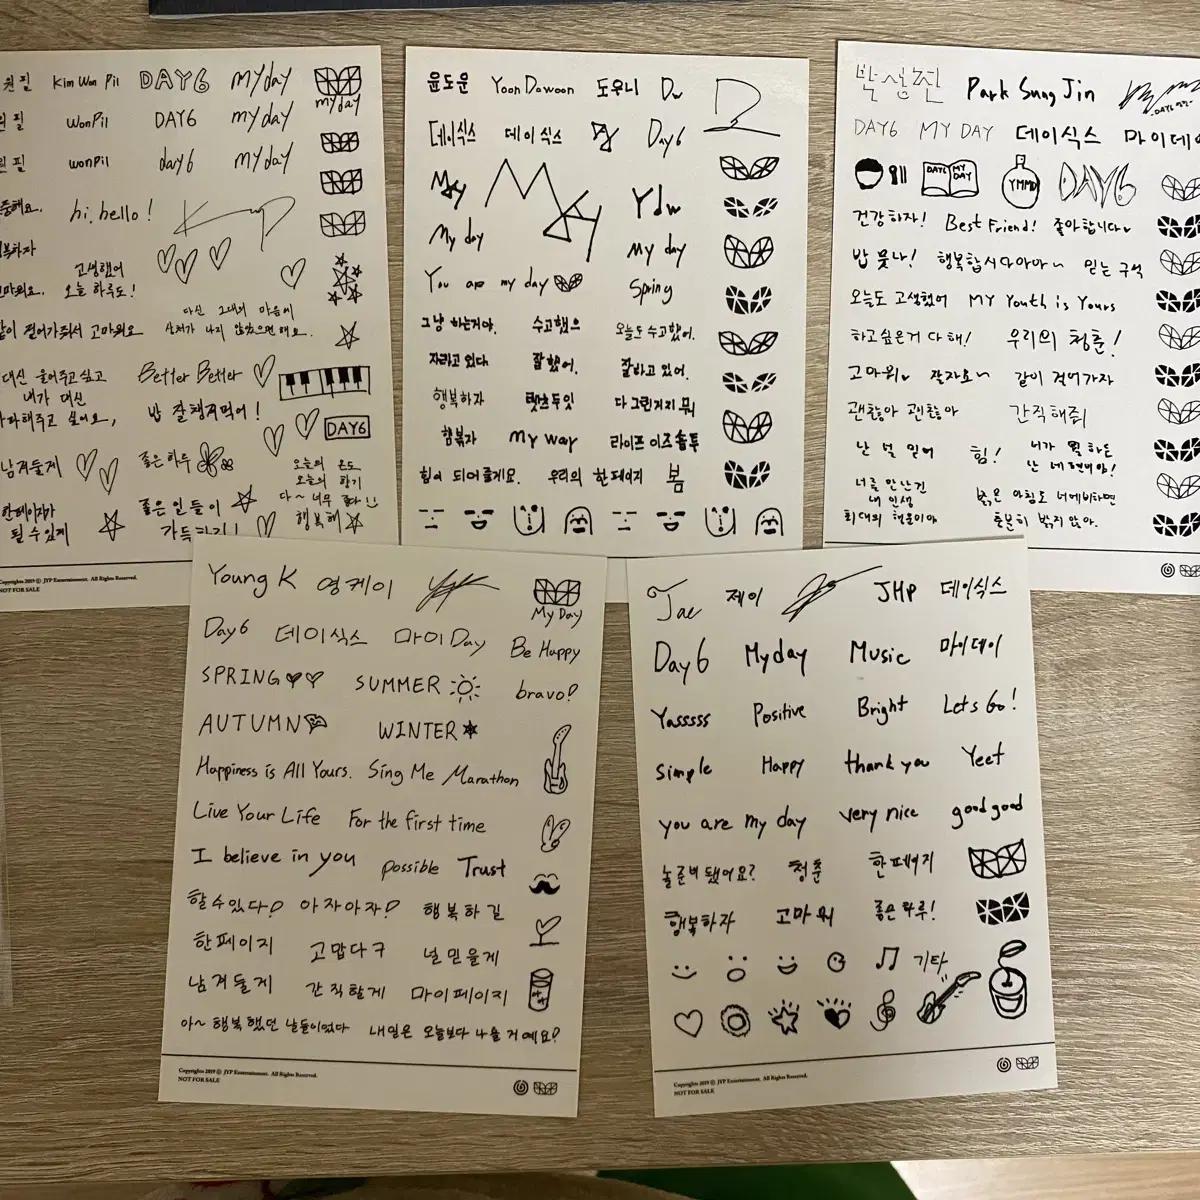 원필 Kim Won Pil DAY6 myday
my day
원필 WonPil DAY6 myday
원필 wonpil day6 myday
hi, hello!
고생했어
오늘 하루도!
다신 그대의 마음에
상처가 나지 않았으면 해요.
같이 걸어가줘서 고마워요
대신 울어주고 싶고
내가 대신
Better Better
밥 잘 챙겨먹어!
DAY6
남겨둘게
좋은 하루
오늘의 온도
오늘의 향기
다~ 너무 좋다
행복해
될 수 있게
좋은 일들이
가득하길!
Copyrights 2019 ⓒ JYP Entertainment. All Rights Reserved.
NOT FOR SALE
윤도운 Yoon Dowoon 도우니 Dw
데이식스 데이식스 Day6
My
My day
Ydw
my day
You are my day
Spring
그냥 하는거야. 수고했으 오늘도 수고했어.
자라고 있다 잘했어. 잘하고 있어.
행복하자 렛츠두잇 다 그런거지 뭐
행복자 my way 라이프 이즈 솔투
힘이 되어줄게요. 우리의 한페이지 봄
박성진 Park Sung Jin
DAY6 MY DAY 데이식스 마이데이
DAY6 MY DAY
DAY6
건강하자! Best Friend! 좋아합니다
밥 묵나! 행복합시다아아~ 믿는 구석
오늘도 고생했어 MY Youth is Yours
하고싶은거 다 해! 우리의 청춘!
고마워 잘자요~ 같이 걸어가자
괜찮아 괜찮아 간직해줘
난 널 믿어 힘! 네가 뭘 하든
난 네 편이야!
너를 만난건
내 인생
최대의 행운이야
밝은 아침도 너에 비하면
충분히 밝지 않아.
Young K 영케이
My Day
Day6 데이식스 마이Day Be Happy
SPRING SUMMER bravo!
AUTUMN WINTER
Happiness is All Yours. Sing Me Marathon
Live Your Life For the first time
I believe in you possible Trust
할 수 있다! 아자아자! 행복하길
한페이지 고맙다구 널 믿을게
남겨둘게 간직할게 마이페이지
아~ 행복했던 날들이었다 내일은 오늘보다 나을 거예요!
Copyrights 2019 ⓒ JYP Entertainment. All Rights Reserved.
NOT FOR SALE
Jae 제이 JHP 데이식스
Day6 Myday Music 마이데이
Yasssss Positive Bright Let's Go!
Simple Happy thank you Yeet
you are my day very nice good good
놀 준비 됐어요? 청춘 한페이지
행복하자 고마워 좋은 하루!
기타
Copyrights 2019 ⓒ JYP Entertainment. All Rights Reserved.
NOT FOR SALE